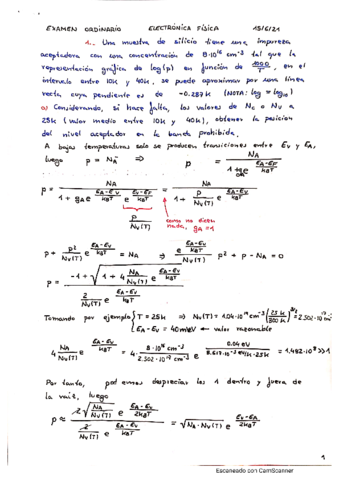 EXAMEN ORDINARIO ELECTRÓNICA FÍSICA 15/6/21
1.- Una muestra de silicio tiene una impureza
aceptadora con una concentración de 8·10¹⁶ cm⁻³ tal que la
representación gráfica de log(p) en función de 1000/T, en el
intervalo entre 10K y 40K, se puede aproximar por una línea
recta cuya pendiente es de -0.287K (NOTA: log ≡ log₁₀)
a) Considerando, si hace falta, los valores de Nc o Nv a
25K (valor medio entre 10K y 40K), obtener la posición
del nivel aceptador en la banda prohibida.
A bajas temperaturas solo se producen transiciones entre Ev y EA,
luego p = NA⁻ ⇒ p = NA / (1 + gA e^((EA-EF)/kBT))
p = NA / (1 + gA e^((EA-Ev)/kBT) e^((Ev-EF)/kBT)) = NA / (1 + p/Nv(T) e^((EA-Ev)/kBT))
p/Nv(T) como no dicen
nada, gA=1
p + p²/Nv(T) e^((EA-Ev)/kBT) = NA ⇒ e^((EA-Ev)/kBT)/Nv(T) p² + p - NA = 0
p = (-1 + √(1 + 4 NA/Nv(T) e^((EA-Ev)/kBT))) / (2/Nv(T) e^((EA-Ev)/kBT))
Tomando por ejemplo { T = 25K ⇒ Nv(T) = 1.04·10¹⁹ cm⁻³ (25K/300K)^(3/2) = 2.502·10¹⁷ cm⁻³
EA - Ev = 40meV ← valor razonable
4 NA/Nv(T) e^((EA-Ev)/kBT) = 4· 8·10¹⁶ cm⁻³/2.502·10¹⁷ cm⁻³ e^(0.04 eV/8.617·10⁻⁵ eV/K·25K) = 1.482·10⁸ >> 1
Por tanto, podremos despreciar los 1 dentro y fuera de
la raíz, luego
p ≈ 2 √(NA/Nv(T)) e^((EA-Ev)/2kBT) / (2/Nv(T) e^((EA-Ev)/kBT)) = √(NA·Nv(T)) e^((Ev-EA)/2kBT)
1
Escaneado con CamScanner